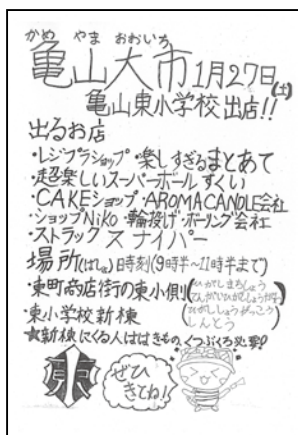 かめ やま おおいち
亀山大市 1月27日(土)
亀山東小学校 出店!!
出るお店
・レジプラショップ・楽しすぎるまとあて
・超楽しいスーパーボールすくい
・CAKEショップ・AROMACANDLE会社
・ショップNiko・輪投げ・ボーリング会社
・ストラックスナイパー
場所(ばしょ)日時刻(9時半〜11時半まで)
・東町商店街の東小側
・東小学校新棟
(ひがしまちしょうてんがいひがしょうがわ
ひがしょうがっこう
しんとう)
★新棟にくる人ははきもの、くつぶくろ必要?
東
ぜひ
きてね!